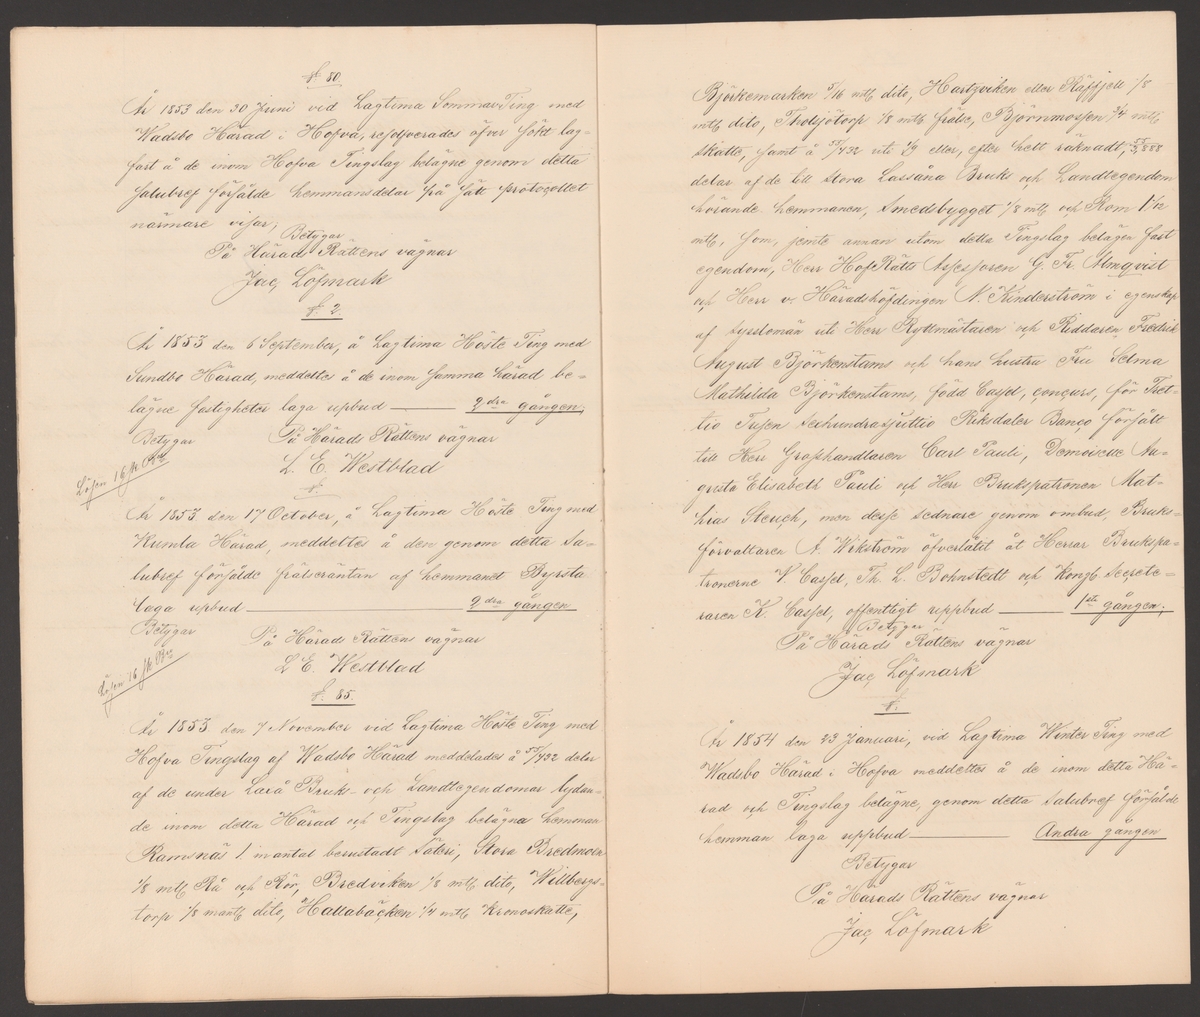 § 80.
År 1853 den 30 Juni vid Lagtima Sommar Ting med
Wadsbo Härad i Hofva, resolverades öfver sökt lag-
fart å de inom Hofva Tingslag belägne genom detta
salubref försålde hemmansdelar på sätt protocollet
närmare visar; Betygar
På Härads Rättens vägnar
Jac. Löfmark
§ 2.
År 1853 den 6 September, å Lagtima Höste Ting med
Sundbo Härad, meddeltes å de inom samma härad be-
lägne fastigheter laga upbud ——— 2dra gången;
Betygar På Härads Rättens vägnar
L. E. Westblad
Lösen 16 sk. Bco
§.
År 1853 den 17 October, å Lagtima Höste Ting med
Kumla Härad, meddeltes å den genom detta sa-
lubref försålde frälseräntan af hemmanet Byrsta
laga upbud ——— 2dra gången
Betygar På Härads Rättens vägnar
L. E. Westblad
Lösen 16 sk. Bco
§. 85.
År 1853 den 7 November vid Lagtima Höste Ting med
Hofva Tingslag af Wadsbo Härad meddelades å 55/432 delar
af de under Laxå Bruks- och Landtegendomar lydan-
de inom detta Härad och Tingslag belägna hemman
Ramsnäs 1. mantal berustadt Säteri, Stora Bredmoen
1/8 mtl Rå och Rör, Bredviken 1/8 mtl dito, Willbergs-
torp 1/8 mantl dito, Hallabäcken 1/4 mtl Kronoskatte,
Björkemarken 5/16 mtl dito, Hartzviken eller Räffjell 1/8
mtl dito, Trotsjötorp 1/8 mtl frälse, Björnmossen 3/4 mtl
skatte, samt å 55/432 uti 1/9 eller, efter hell räknadt, 55/3,888
delar af de till Stora Lassåna Bruks och Landtegendom
hörande hemmanen, Smedsbygget 1/8 mtl och Rom 1 1/12
mtl, som, jemte annan utom detta Tingslag belägen fast
egendom, Herr HofRätts Assessoren G. Fr. Almqvist
och Herr v. Häradshöfdingen N. Kinderström i egenskap
af sysslomän uti Herr Ryttmästaren och Riddaren Fredrik
August Björkenstams och hans hustru Fru Selma
Mathilda Björkenstams, född Cassel, concurs, för Tret-
tio Tusen Sexhundrasjuttio Riksdaler Banco försålt
till Herr Grosshandlaren Carl Pauli, Demoiselle Au-
gusta Elisabeth Pauli och Herr Brukspatronen Mat-
thias Steuch, men desse sednare genom ombud, Bruks-
förvaltaren A. Wikström öfverlåtit åt Herrar Brukspa-
tronerne V. Cassel, Th. L. Bohnstedt och Kongl. Secrete-
raren K. Cassel, offentligt uppbud ——— 1sta gången;
Betygar
På Härads Rättens vägnar
Jac. Löfmark
§.
År 1854 den 23 Januari, vid Lagtima Winter Ting med
Wadsbo Härad i Hofva meddeltes å de inom detta Hä-
rad och Tingslag belägne, genom detta salubref försålde
hemman laga uppbud ——— Andra gången
Betygar
På Härads Rättens vägnar
Jac. Löfmark